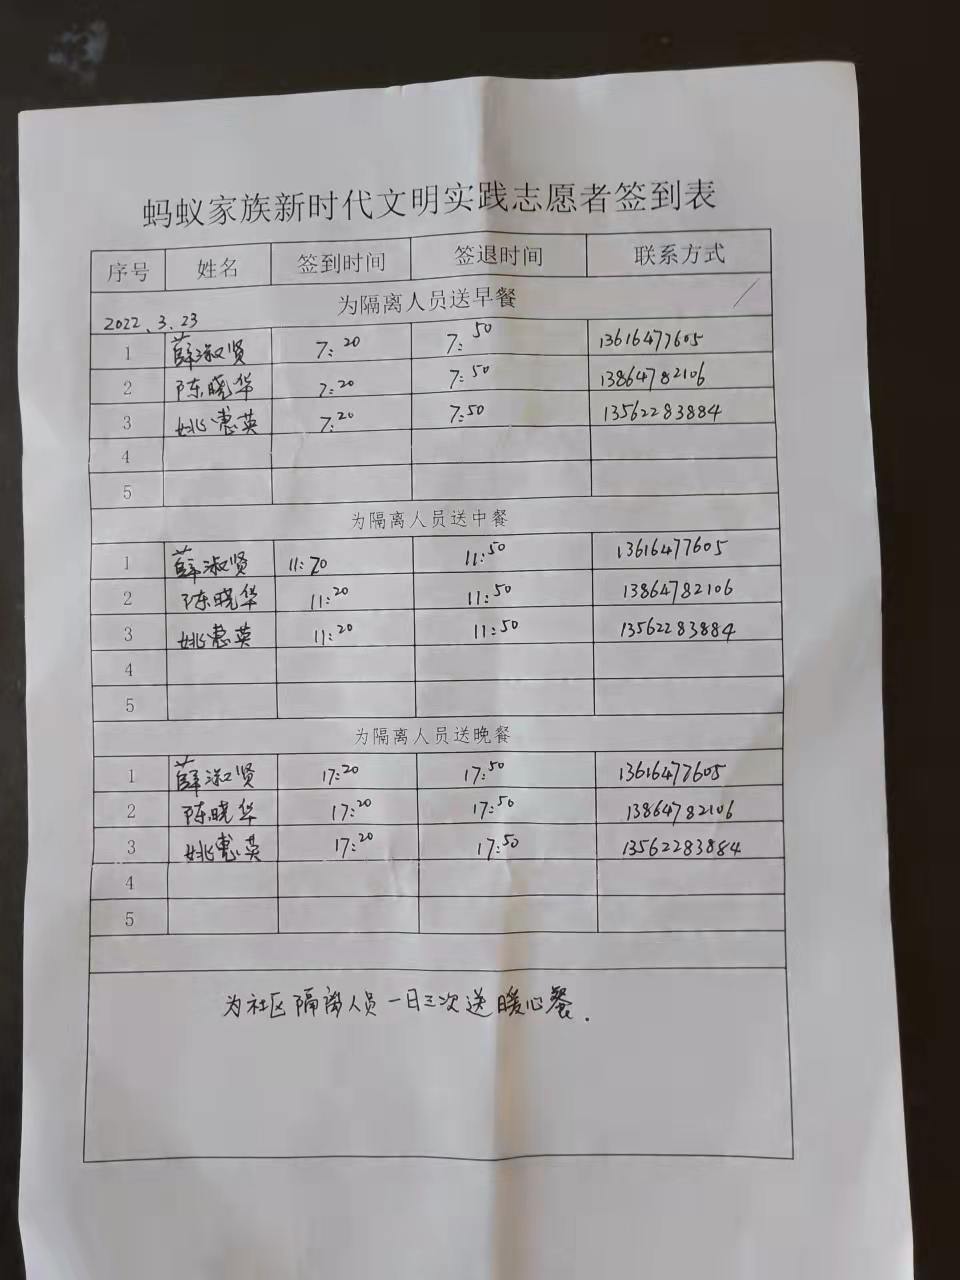 蚂蚁家族新时代文明实践志愿者签到表
序号 姓名 签到时间 签退时间 联系方式
为隔离人员送早餐
2022.3.23
1 薛淑贤 7:20 7:50 13616477605
2 陈晓华 7:20 7:50 13864782106
3 姚惠英 7:20 7:50 13562283884
4
5
为隔离人员送中餐
1 薛淑贤 11:20 11:50 13616477605
2 陈晓华 11:20 11:50 13864782106
3 姚惠英 11:20 11:50 13562283884
4
5
为隔离人员送晚餐
1 薛淑贤 17:20 17:50 13616477605
2 陈晓华 17:20 17:50 13864782106
3 姚惠英 17:20 17:50 13562283884
4
5
为社区隔离人员一日三次送暖心餐.